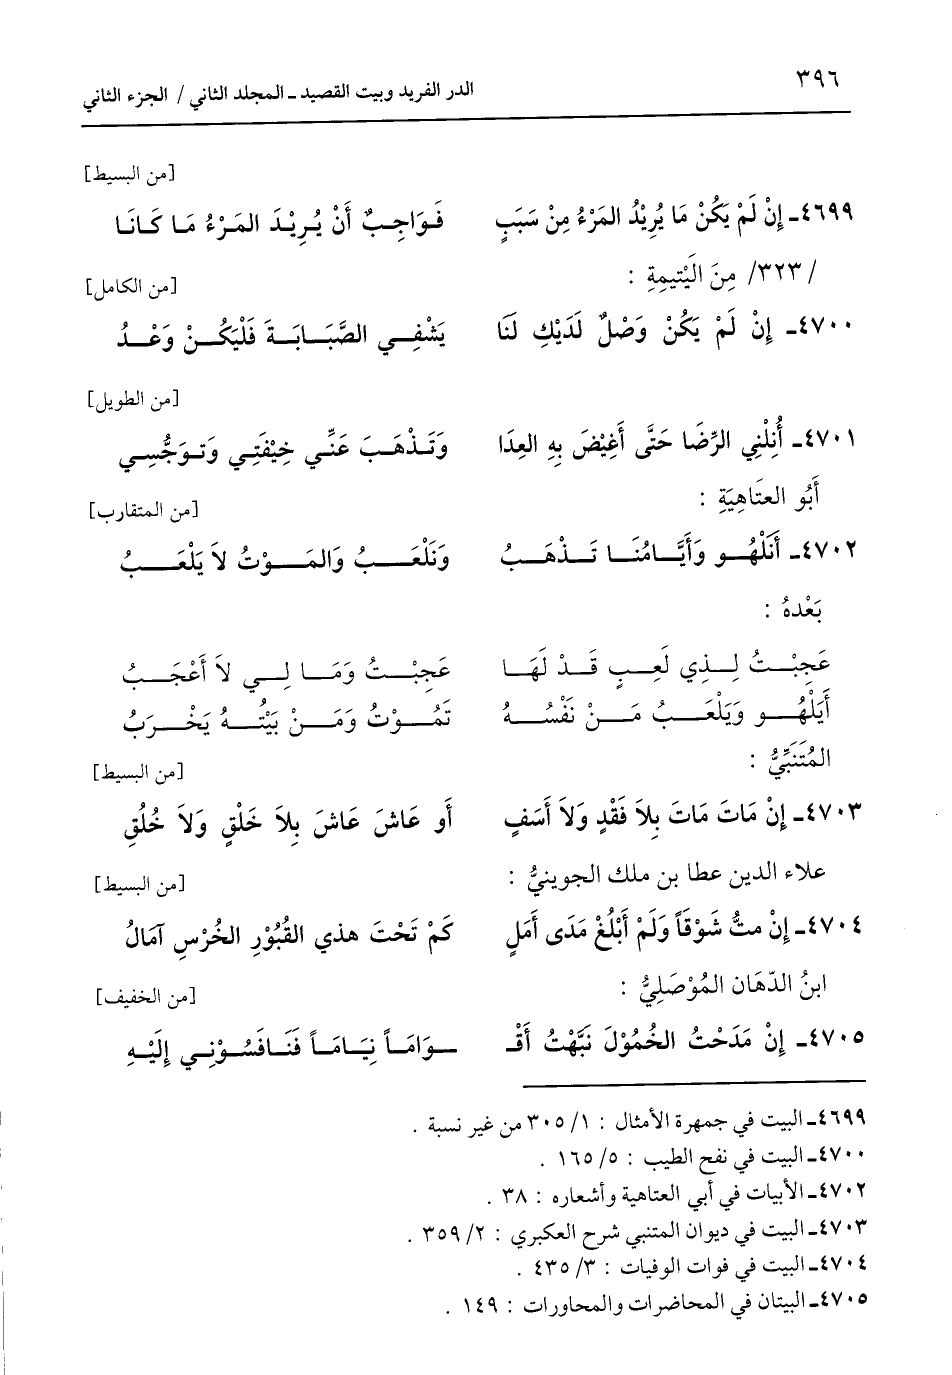 ٣٩٦ الدر الفريد وبيت القصيد ـ المجلد الثاني / الجزء الثاني
[من البسيط]
٤٦٩٩ـ إِنْ لَمْ يَكُنْ مَا يُرِيْدُ المَرْءُ مِنْ سَبَبٍ فَوَاجِبٌ أَنْ يُرِيْدَ المَرْءُ مَا كَانَا
/٣٢٣/ مِنَ الَيْتِيمِةِ : [من الكامل]
٤٧٠٠ـ إِنْ لَمْ يَكُنْ وَصْلٌ لَدَيْكِ لَنَا يَشْفِي الصَّبَابَةَ فَلْيَكُنْ وَعْدُ
[من الطويل]
٤٧٠١ـ أَنِلْنِي الرِّضَا حَتَّى أَغِيْضَ بِهِ العِدَا وَتَذْهَبَ عَنِّي خِيْفَتِي وَتوَجُّسِي
أَبُو العَتَاهِيَةِ : [من المتقارب]
٤٧٠٢ـ أَنَلْهُو وَأَيَّامُنَا تَذْهَبُ وَنَلْعَبُ وَالمَوْتُ لاَ يَلْعَبُ
بَعْدهُ :
عَجِبْتُ لِذِي لَعِبٍ قَدْ لَهَا عَجِبْتُ وَمَا لِي لاَ أَعْجَبُ
أَيَلْهُو وَيَلْعَبُ مَنْ نَفْسُهُ تَمُوْتُ وَمَنْ بَيْتُهُ يَخْرَبُ
المُتَنَبِّيُّ : [من البسيط]
٤٧٠٣ـ إِنْ مَاتَ مَاتَ بِلاَ فَقْدٍ وَلاَ أَسَفٍ أَو عَاشَ عَاشَ بِلاَ خَلْقٍ وَلاَ خُلُقِ
علاء الدين عطا بن ملك الجوينيُّ : [من البسيط]
٤٧٠٤ـ إِنْ متُّ شَوْقَاً وَلَمْ أَبْلُغْ مَدَى أَمَلٍ كَمْ تَحْتَ هذي القُبُوْرِ الخُرْسِ آمَالُ
ابنُ الدّهَان المُوْصَلِيُّ : [من الخفيف]
٤٧٠٥ـ إِنْ مَدَحْتُ الخُمُوْلَ نَبَّهْتُ أَقْـ ـوَامَاً نِيَامَاً فَنَافَسُوْنِي إِلَيْهِ
٤٦٩٩ـ البيت في جمهرة الأمثال : ١/ ٣٠٥ من غير نسبة .
٤٧٠٠ـ البيت في نفح الطيب : ٥/ ١٦٥ .
٤٧٠٢ـ الأبيات في أبي العتاهية وأشعاره : ٣٨ .
٤٧٠٣ـ البيت في ديوان المتنبي شرح العكبري : ٢/ ٣٥٩ .
٤٧٠٤ـ البيت في فوات الوفيات : ٣/ ٤٣٥ .
٤٧٠٥ـ البيتان في المحاضرات والمحاورات : ١٤٩ .